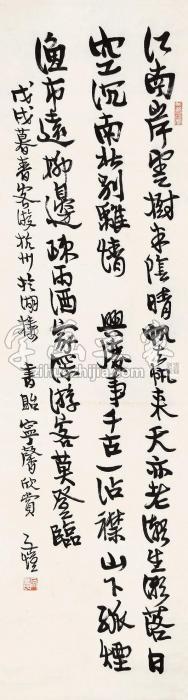 江南岸雲樹半陰晴帆去帆來天亦老潮生潮落日
空沉南北別離情 興廢事千古一沾襟山下孤煙
漁市遠柳邊疏雨酒家深游客莫登臨
戊戌暮春客游杭州於湖樓 書貽寧馨欣賞 子愷